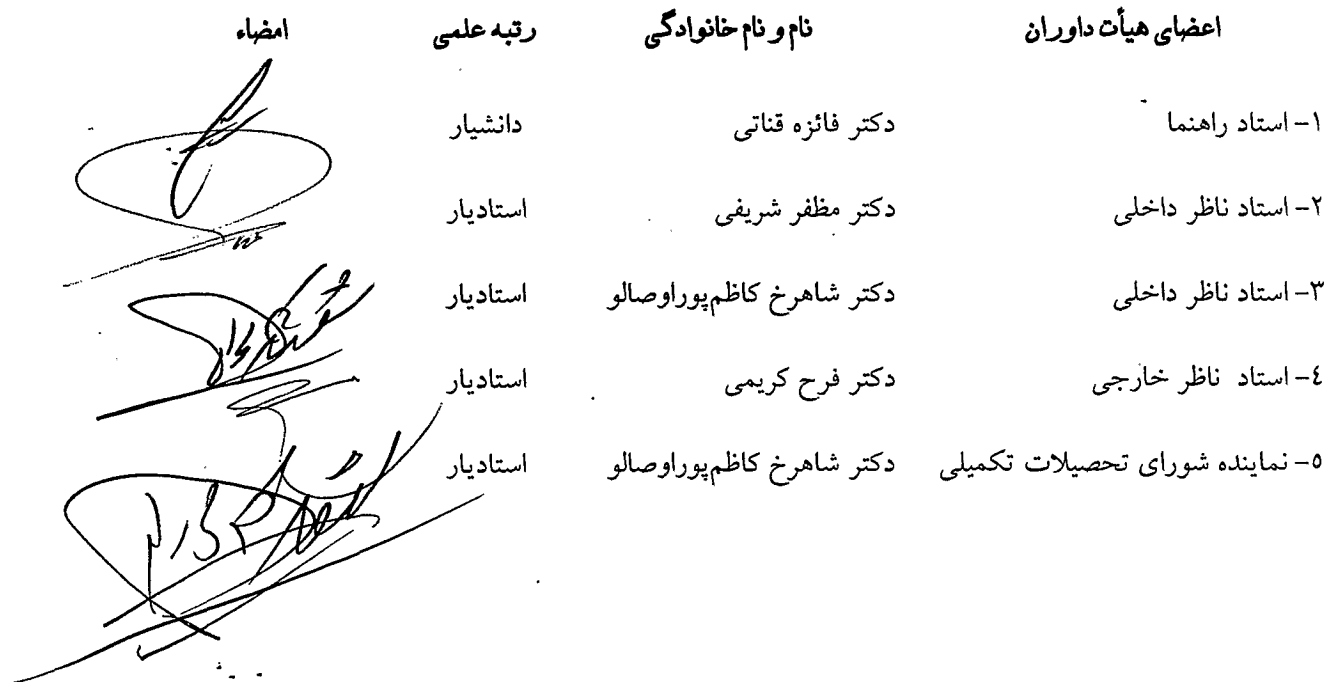 اعضای هیأت داوران نام و نام خانوادگی رتبه علمی امضاء
۱- استاد راهنما دکتر فائزه قناتی دانشیار
۲- استاد ناظر داخلی دکتر مظفر شریفی استادیار
۳- استاد ناظر داخلی دکتر شاهرخ کاظم‌پوراوصالو استادیار
٤- استاد ناظر خارجی دکتر فرح کریمی استادیار
٥- نماینده شورای تحصیلات تکمیلی دکتر شاهرخ کاظم‌پوراوصالو استادیار